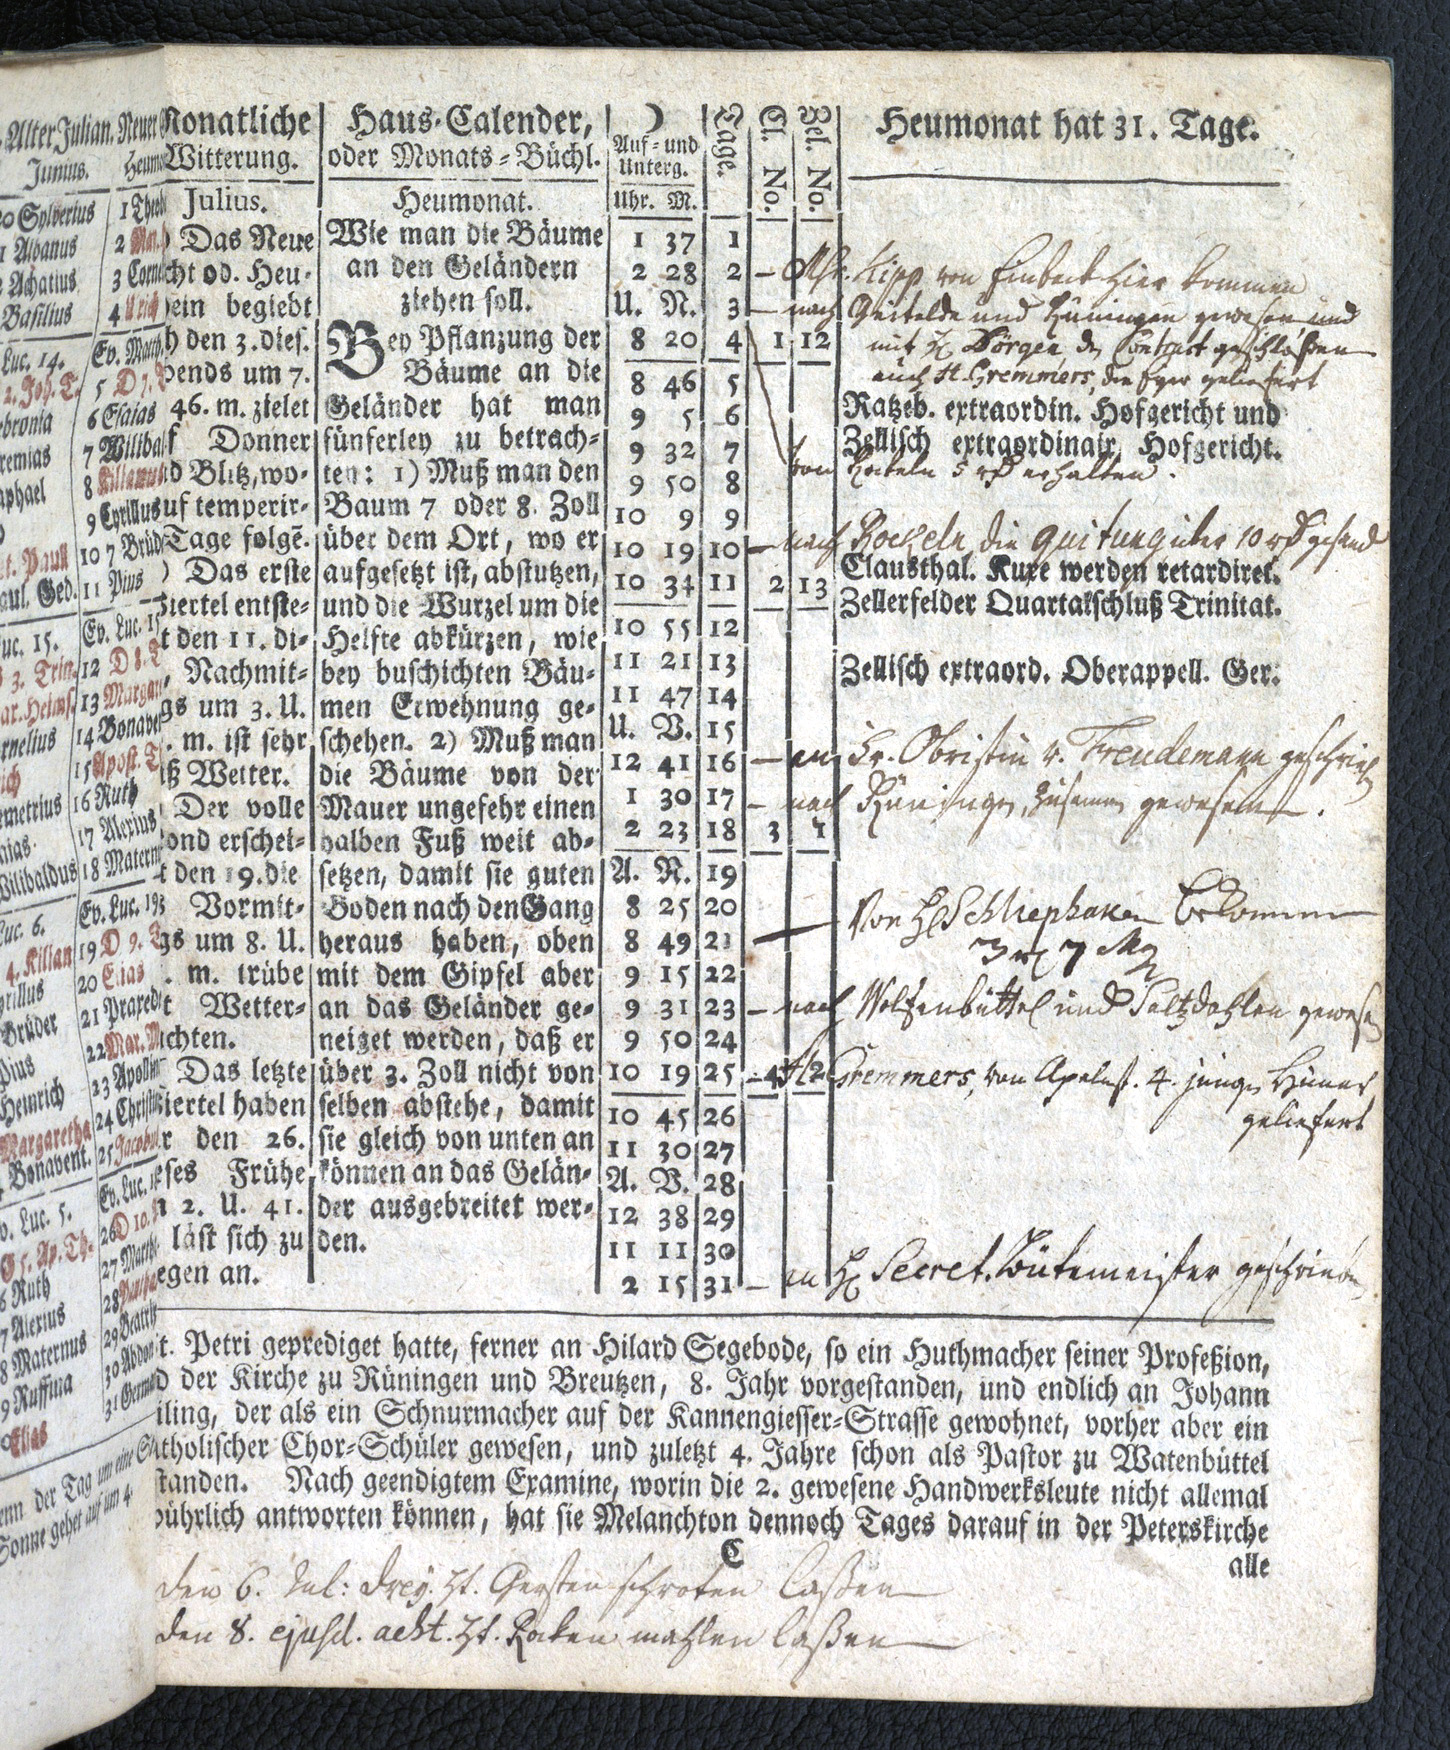 Alter Julian. Neuer
Junius.
20 Sylverius
1 Albanus
2 Achatius
3 Basilius
Luc. 14.
2. Joh. T.
ebronia
remias
aphael
t. Paull
aul. Ged.
uc. 15.
3. Trin.
ar. Heims.
rnelius
metrius
Wilibaldus
Luc. 6.
4. Kilian
yrillus
Brüder
Pius
Heinrich
Margaretha
Bonavent.
v. Luc. 5.
5. Ap. Th.
6 Ruth
7 Alexius
8 Maternus
9 Ruffina
Elias
enn der Tag um eine St
Sonne gehet auf um 4.
1 Theob
2 Mar.
3 Corne
4 Ulrich
Ev. Matth
5 D 7.
6 Esaias
7 Willibal
8 Kilianus
9 Cyrillus
10 7 Brüd
11 Pius
Ev. Luc. 15
12 D 8. T
13 Margar
14 Bonaven
15 Apost. T
16 Ruth
17 Alexius
18 Matern
Ev. Luc. 19
19 D 9. T
20 Elias
21 Praxed
22 Mar. M
23 Apollin
24 Christin
25 Jacobus
Ev. Luc. 1
26 D 10.
27 Marth
28 Panta
29 Beatrix
30 Abdon
31 German
Monatliche
Witterung.
Julius.
) Das Neue
cht od. Heu-
ein begiebt
h den 3. dies.
bends um 7.
46. m. zielet
f Donner
d Blitz, wo-
uf temperir-
Tage folgē.
) Das erste
Viertel entste-
t den 11. di-
, Nachmit-
gs um 3. U.
. m. ist sehr
iß Wetter.
Der volle
ond erschei-
t den 19. die
s Vormit-
gs um 8. U.
. m. trübe
t Wetter-
chten.
Das letzte
Viertel haben
r den 26.
ses Frühe
n 2. U. 41.
läst sich zu
egen an.
Haus-Calender,
oder Monats-Büchl.
Heumonat.
Wie man die Bäume
an den Geländern
ziehen soll.
Bey Pflanzung der
Bäume an die
Geländer hat man
fünferley zu betrach-
ten: 1) Muß man den
Baum 7 oder 8. Zoll
über dem Ort, wo er
aufgesetzt ist, abstutzen,
und die Wurzel um die
Helfte abkürzen, wie
bey buschichten Bäu-
men Erwehnung ge-
schehen. 2) Muß man
die Bäume von der
Mauer ungefehr einen
halben Fuß weit ab-
setzen, damit sie guten
Boden nach den Gang
heraus haben, oben
mit dem Gipfel aber
an das Geländer ge-
neiget werden, daß er
über 3. Zoll nicht von
selben abstehe, damit
sie gleich von unten an
können an das Gelän-
der ausgebreitet wer-
den.
☽ Auf- und Unterg. Uhr. M. Tage. Cl. No. Zel. No.
1 37 1
2 28 2
U. N. 3
8 20 4 1 12
8 46 5
9 5 6
9 32 7
9 50 8
10 9 9
10 19 10
10 34 11 2 13
10 55 12
11 21 13
11 47 14
U. V. 15
12 41 16
1 30 17
2 23 18 3 1
A. N. 19
8 25 20
8 49 21
9 15 22
9 31 23
9 50 24
10 19 25 4 2
10 45 26
11 30 27
A. V. 28
12 38 29
11 11 30
2 15 31
Heumonat hat 31. Tage.
Kipp von Einbeck hier kommen
nach Geitelde und Rüningen gewesen und
mit H. Börgen den Contract geschloßen
auch H. Gremmers, die Eyer geliefert
Ratzeb. extraordin. Hofgericht und
Zellisch extraordinair. Hofgericht.
von 5 rthl erhalten.
nach die Quitung über 10 rthl gesand
Clausthal. Kuxe werden retardiret.
Zellerfelder Quartalschluß Trinitat.
Zellisch extraord. Oberappell. Ger.
— an Fr. Obristin v. Freudemann geschrieb
— nach Rüningen gewesen.
— Von H. Schliephaken bekommen
3 rthl 7 Mg
— nach Wolfenbüttel und Saltzdahlen gewesen
Gremmers, von Apelnst. 4. junge Hüner
geliefert
— an H. Secret. Wütemeister geschrieben
t. Petri geprediget hatte, ferner an Hilard Segebode, so ein Huthmacher seiner Profeßion,
d der Kirche zu Rüningen und Breutzen, 8. Jahr vorgestanden, und endlich an Johann
iling, der als ein Schnurmacher auf der Kannengiesser-Strasse gewohnet, vorher aber ein
atholischer Chor-Schüler gewesen, und zuletzt 4. Jahre schon als Pastor zu Watenbüttel
standen. Nach geendigtem Examine, worin die 2. gewesene Handwerksleute nicht allemal
bührlich antworten können, hat sie Melanchton dennoch Tages darauf in der Peterskirche
C alle
den 6. Jul: drey. Ht. Gersten schroten laßen
den 8. ejusd. acht. Ht. Rocken mahlen laßen